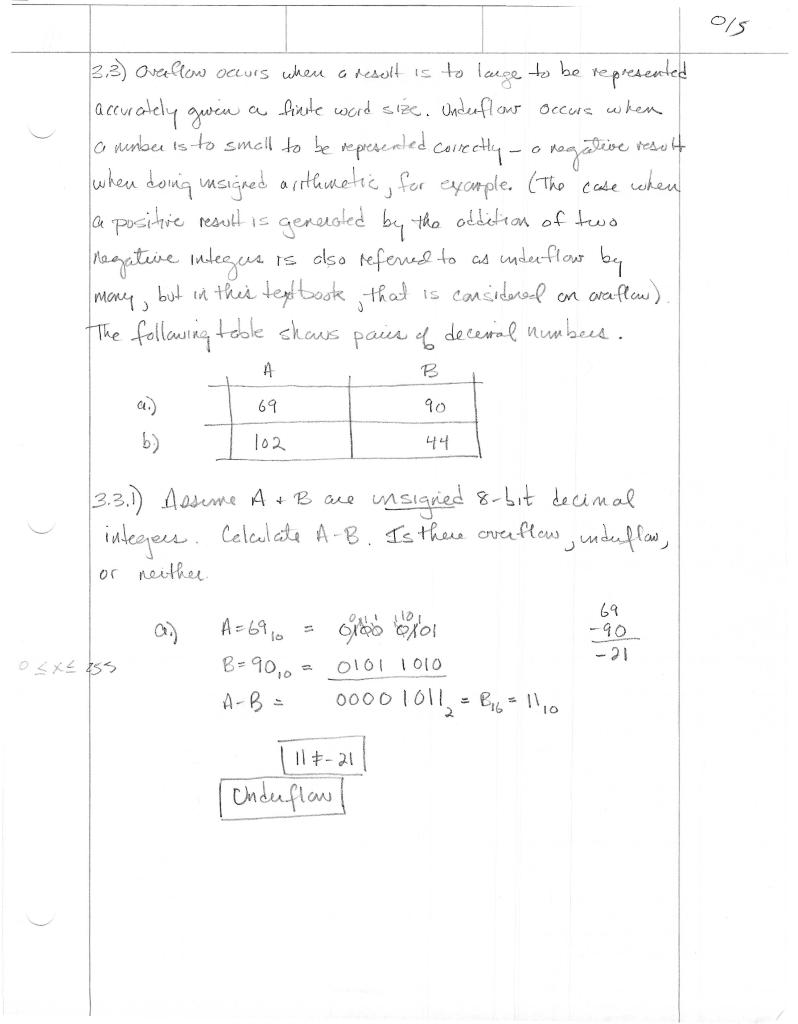 0/5
3.3) Overflow occurs when a result is to large to be represented
accurately given a finite word size. Underflow occurs when
a number is to small to be represented correctly – a negative result
when doing unsigned arithmetic, for example. (The case when
a positive result is generated by the addition of two
negative integers is also referred to as underflow by
many, but in this textbook, that is considered an overflow).
The following table shows pairs of decimal numbers.
A B
a.) 69 90
b) 102 44
3.3.1) Assume A + B are unsigned 8-bit decimal
integers. Calculate A-B. Is there overflow, underflow,
or neither.
69
-90
-21
a.) A=69₁₀ = 0100 0101
0 ≤ x ≤ 255 B=90₁₀ = 0101 1010
A-B = 0000 1011₂ = B₁₆ = 11₁₀
11 ≠ -21
Underflow